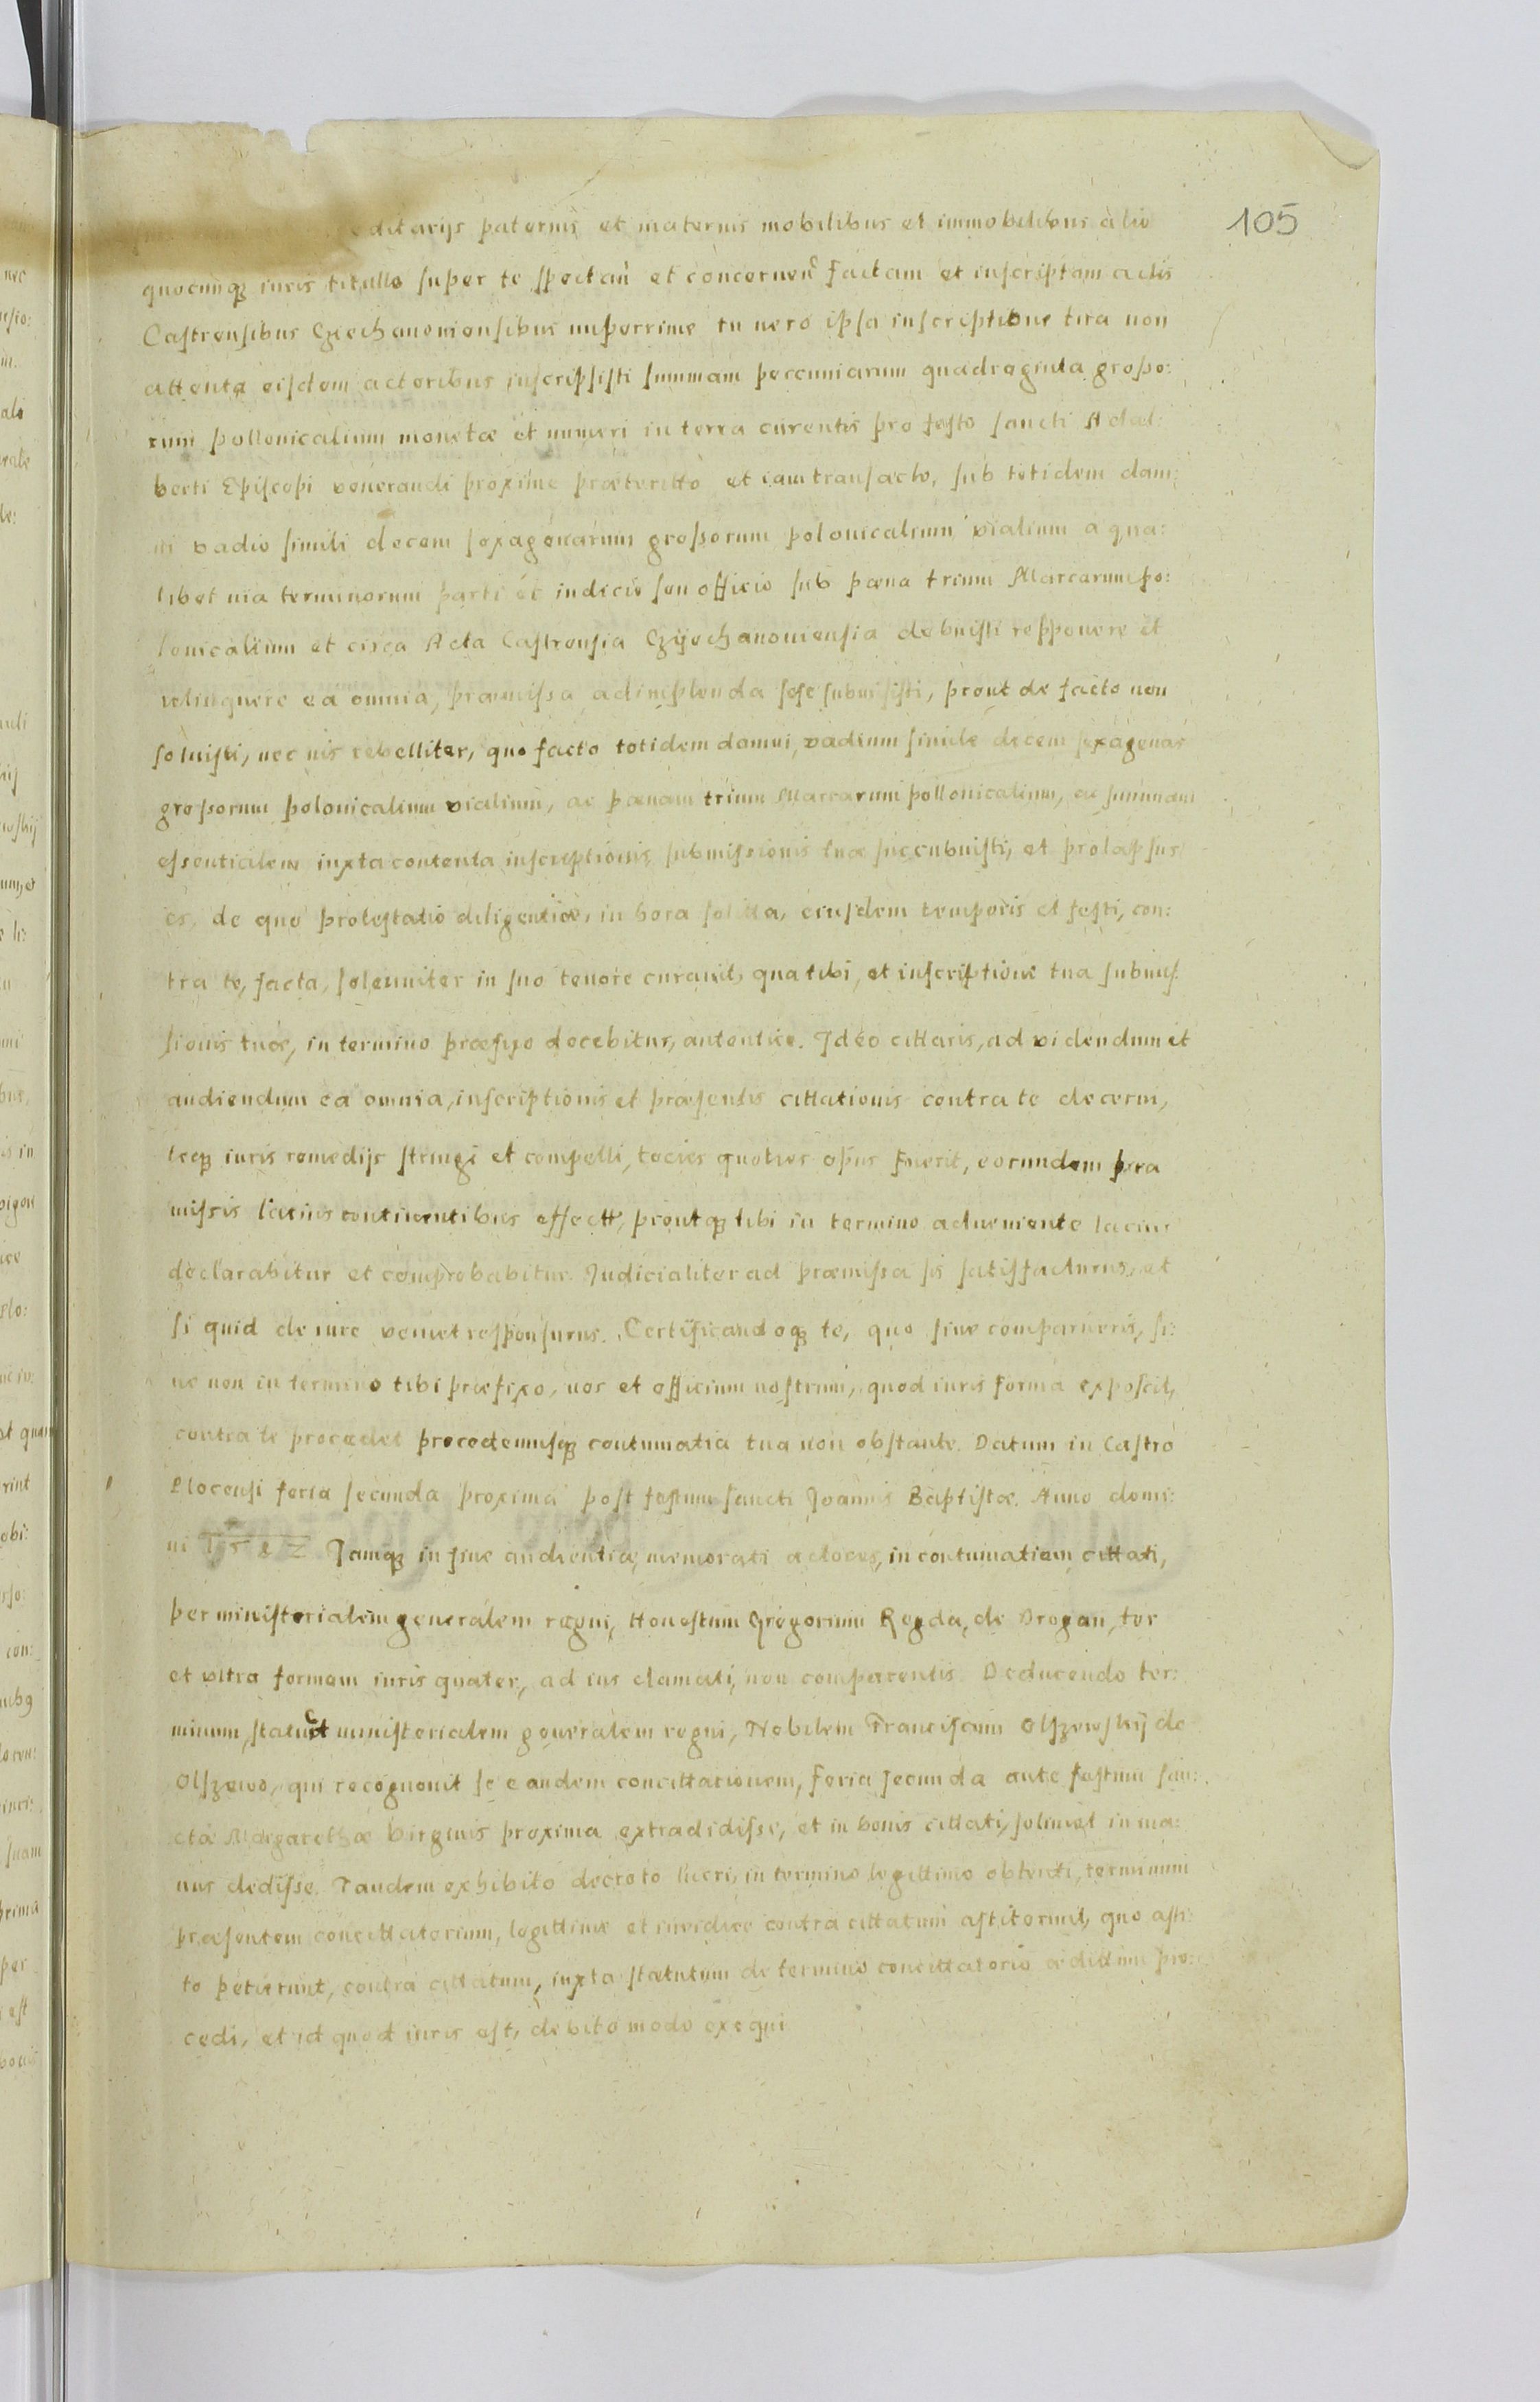 105
editarijs paternis et maternis mobilibus et immobilibus alio
quocunq iuris titullo super te spectan et concernen factam et inscriptam actis
Castrensibus Cziechanoniensibus nuperrime tu uero ipsa inscriptione tua non
attenta eisdem actoribus inscripsisti summam peccuniarum quadraginta grosso:
rum pollonicalium monetæ et numeri in terra curentis pro festo sancti Adal:
berti Episcopi venerandi proxime præteritto et iam transacto, sub totidem dam:
ni vadio simili decem sexagenarum grossorum polonicalium vialium a qua:
libet uia terminorum parti et iudicio seu officio sub pæna trium Marcarum po:
lonicalium et circa Acta Castrensia Czijechanoniensia debuisti respponere et
relinquere ea omnia, præmissa adimplenda sese submisisti, prout de facto non
soluisti, nec uis rebelliter, quo facto totidem damni, vadium simile decem sexagenas
grossorum polonicalium vialium, ac pænam trium Marcarum pollonicalium, ac summam
essentialem iuxta contenta inscriptionis submissionis tuæ succubuisti, et prolapsus
es, de quo protestatio diligentiæ, in hora solitta, eiusdem temporis et festi, con:
tra te, facta, solenniter in suo tenore curauit, qua tibi, et inscriptione tua submis
sionis tuæ, in termino præfixo docebitur, autentice. Ideo cittaris, ad videndum et
audiendum ea omnia, inscriptionis et præsentis cittationis contra te decerni,
teq iuris remedijs stringi et compelli, tocies quoties opus fuerit, eorundem præ
missis lacius continentibus effectt, proutq tibi in termino adueniente lacius
declarabitur et comprobabitur. Judicialiter ad præmissa sis satisfacturus, et
si quid de iure veniet responsurus. Certificandoq te, quo siue comparueris, si:
ue non in termino tibi præfixo, nos et officium nostrum, quod iuris forma exposcit,
contra te procedet procedemusq contumatia tua non obstante. Datum in Castro
Plocensi feria secunda proxima post festum sancti Joannis Baptistæ. Anno domi:
ni 1582 Jamq in fine audientiæ, memorati actores, in contumatiam cittati,
per ministerialem generalem regni, Honestum Gregorium Regda, de Drogan, ter
et vltra formam iuris quater, ad ius clamati, non comparentis. Deducendo ter:
minum, statuit ministerialem generalem regni, Nobilem Franciscum Olszewskij de
Olszewo, qui recognouit se eandem concittationem, feria secunda ante festum san:
ctæ Margarethæ Virginis proxima extradidisse, et in bonis cittati, solimet in ma:
nus dedisse. Tandem exhibito decreto lucri, in termino legittimo obtenti, terminum
præsentem concittatorium, legittime et iuridice contra cittatum astiterunt, quo asti:
to petierunt, contra cittatum, iuxta statutum de termino concittatorio ædittum pro:
cedi, et id quod iuris est, debito modo exequi